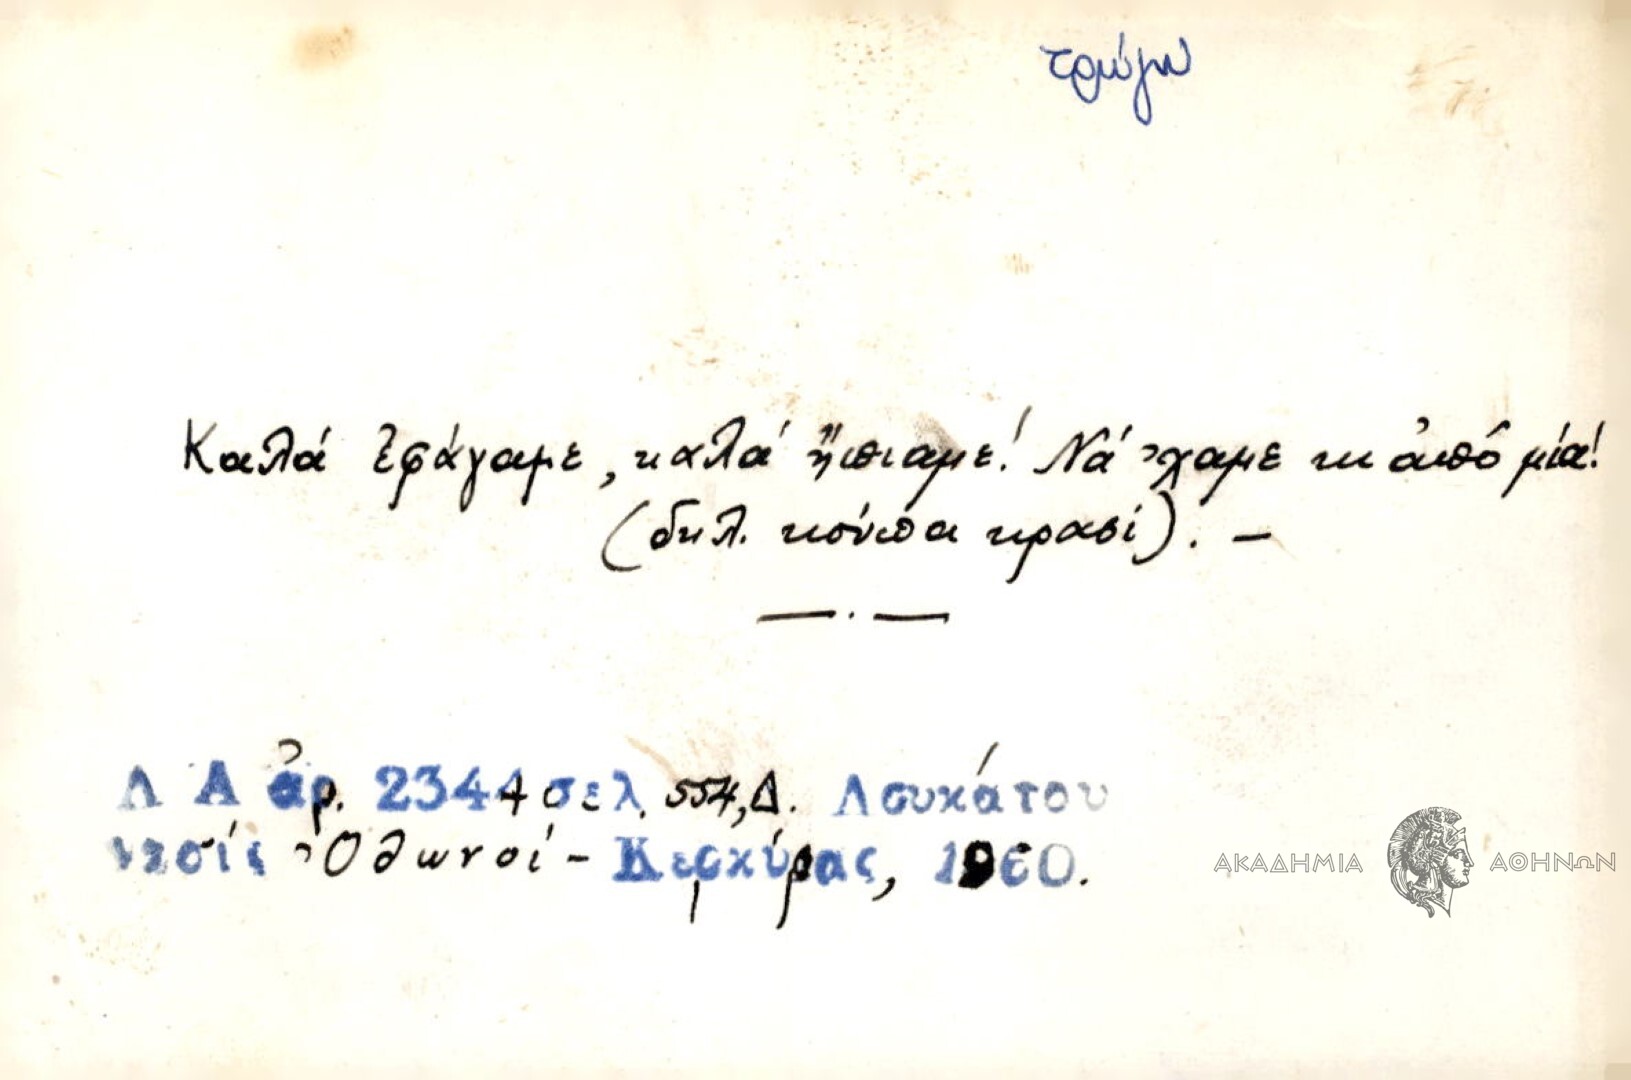 τρώγω
Καλά ἐφάγαμε, καλά ἤπιαμε! Νά 'χαμε κι ἀπό μία!
(δηλ. κούπα κρασί). —
— . —
Λ Α ἀρ. 2344 σελ. 554, Δ. Λουκάτου
νησίς Ὀθωνοί - Κερκύρας, 1960.
ΑΚΑΔΗΜΙΑ ΑΘΗΝΩΝ